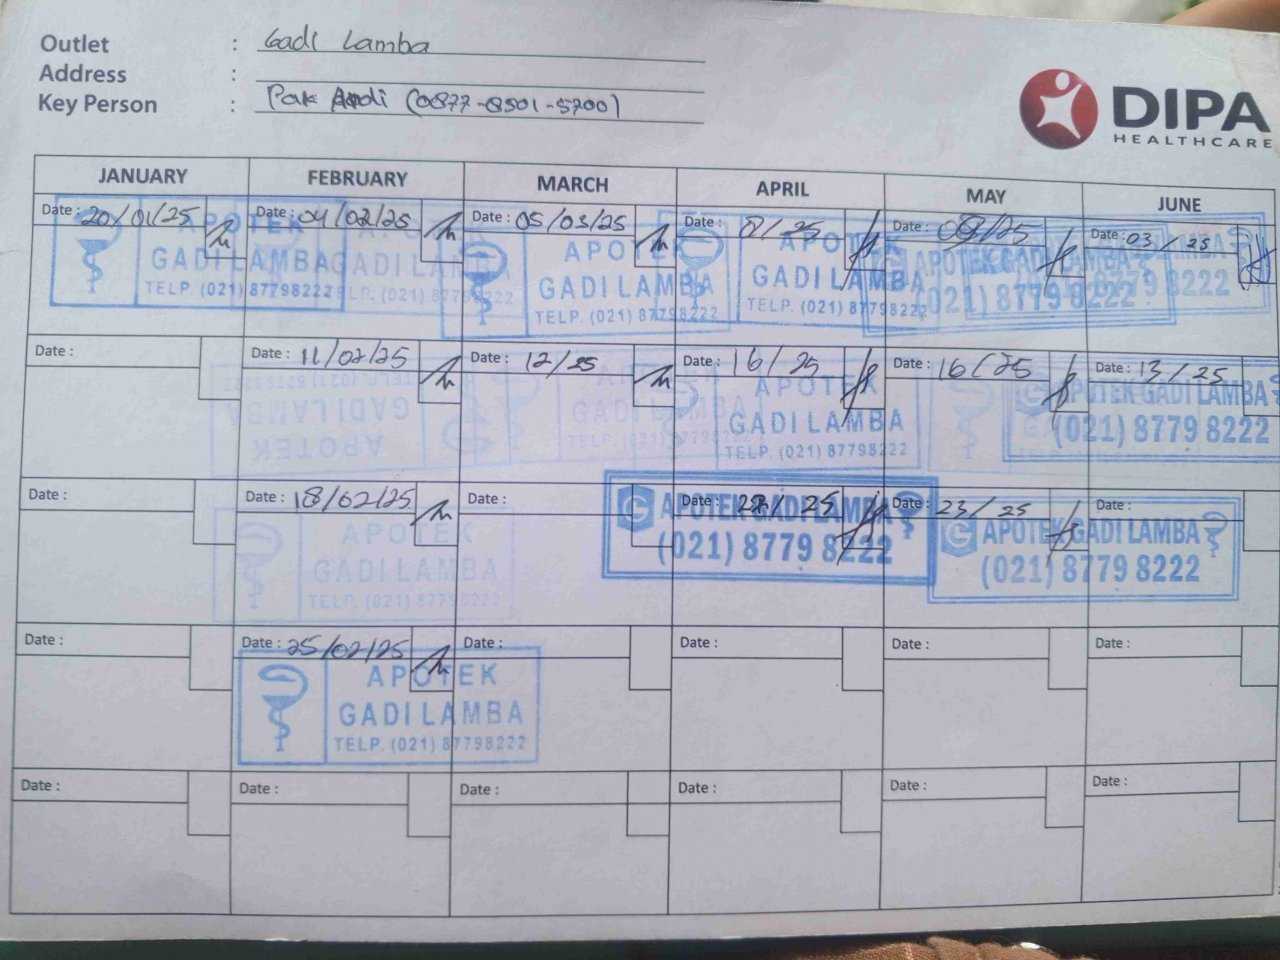 Outlet : Gadi Lamba
Address :
Key Person : Pak Andi (0877-8501-5700)
DIPA
HEALTHCARE
JANUARY FEBRUARY MARCH APRIL MAY JUNE
Date : 20/01/25 Date : 04/02/25 Date : 05/03/25 Date : /25 Date : /25 Date : 03/25
APOTEK APOTEK APOTEK APOTEK
GADI LAMBA GADI LAMBA GADI LAMBA GADI LAMBA APOTEK GADI LAMBA
TELP. (021) 87798222 TELP. (021) 87798222 TELP. (021) 87798222 (021) 8779 8222
Date : Date : 11/02/25 Date : 12/25 Date : 16/25 Date : 16/25 Date : 13/25
APOTEK APOTEK APOTEK APOTEK GADI LAMBA
GADI LAMBA GADI LAMBA GADI LAMBA (021) 8779 8222
TELP. (021) 87798222 TELP. (021) TELP. (021) 87798222
Date : Date : 18/02/25 Date : Date : /25 Date : 23/25 Date :
APOTEK APOTEK GADI LAMBA APOTEK GADI LAMBA
GADI LAMBA (021) 8779 8222 (021) 8779 8222
TELP. (021) 87798222
Date : Date : 25/02/25 Date : Date : Date : Date :
APOTEK
GADI LAMBA
TELP. (021) 87798222
Date : Date : Date : Date : Date : Date :